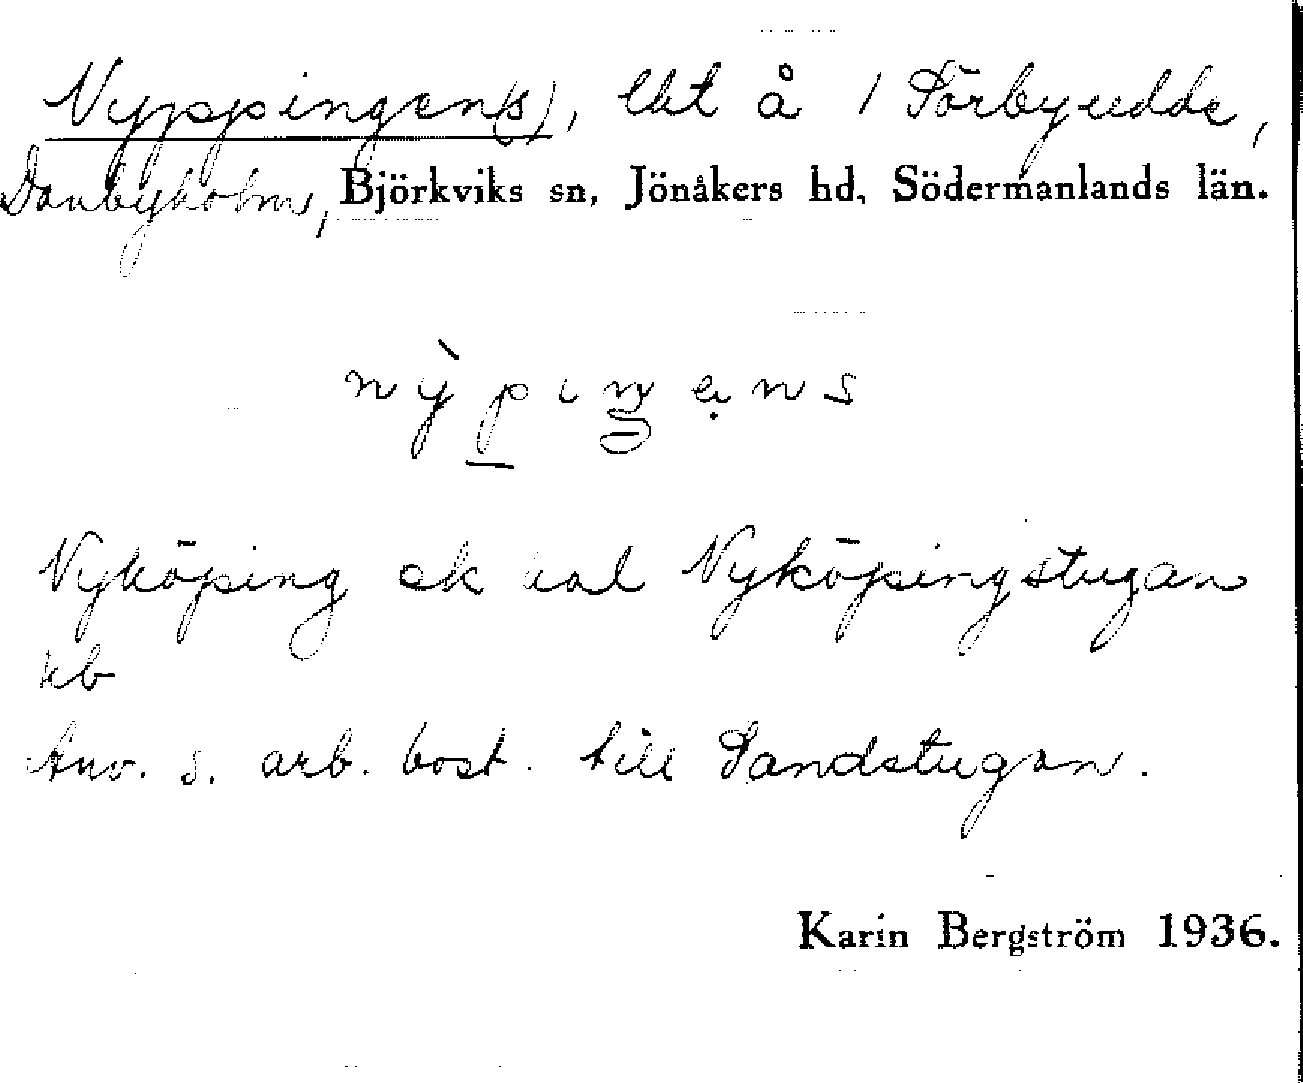 Nyppingen(s), lht å 1 Sörbyudde,
Danbyholm, Björkviks sn, Jönåkers hd, Södermanlands län.
nỳpiŋens
Nyköping ek kal Nyköpingstugan
kb
Anv. s. arb. bost. till Sandstugan.
Karin Bergström 1936.